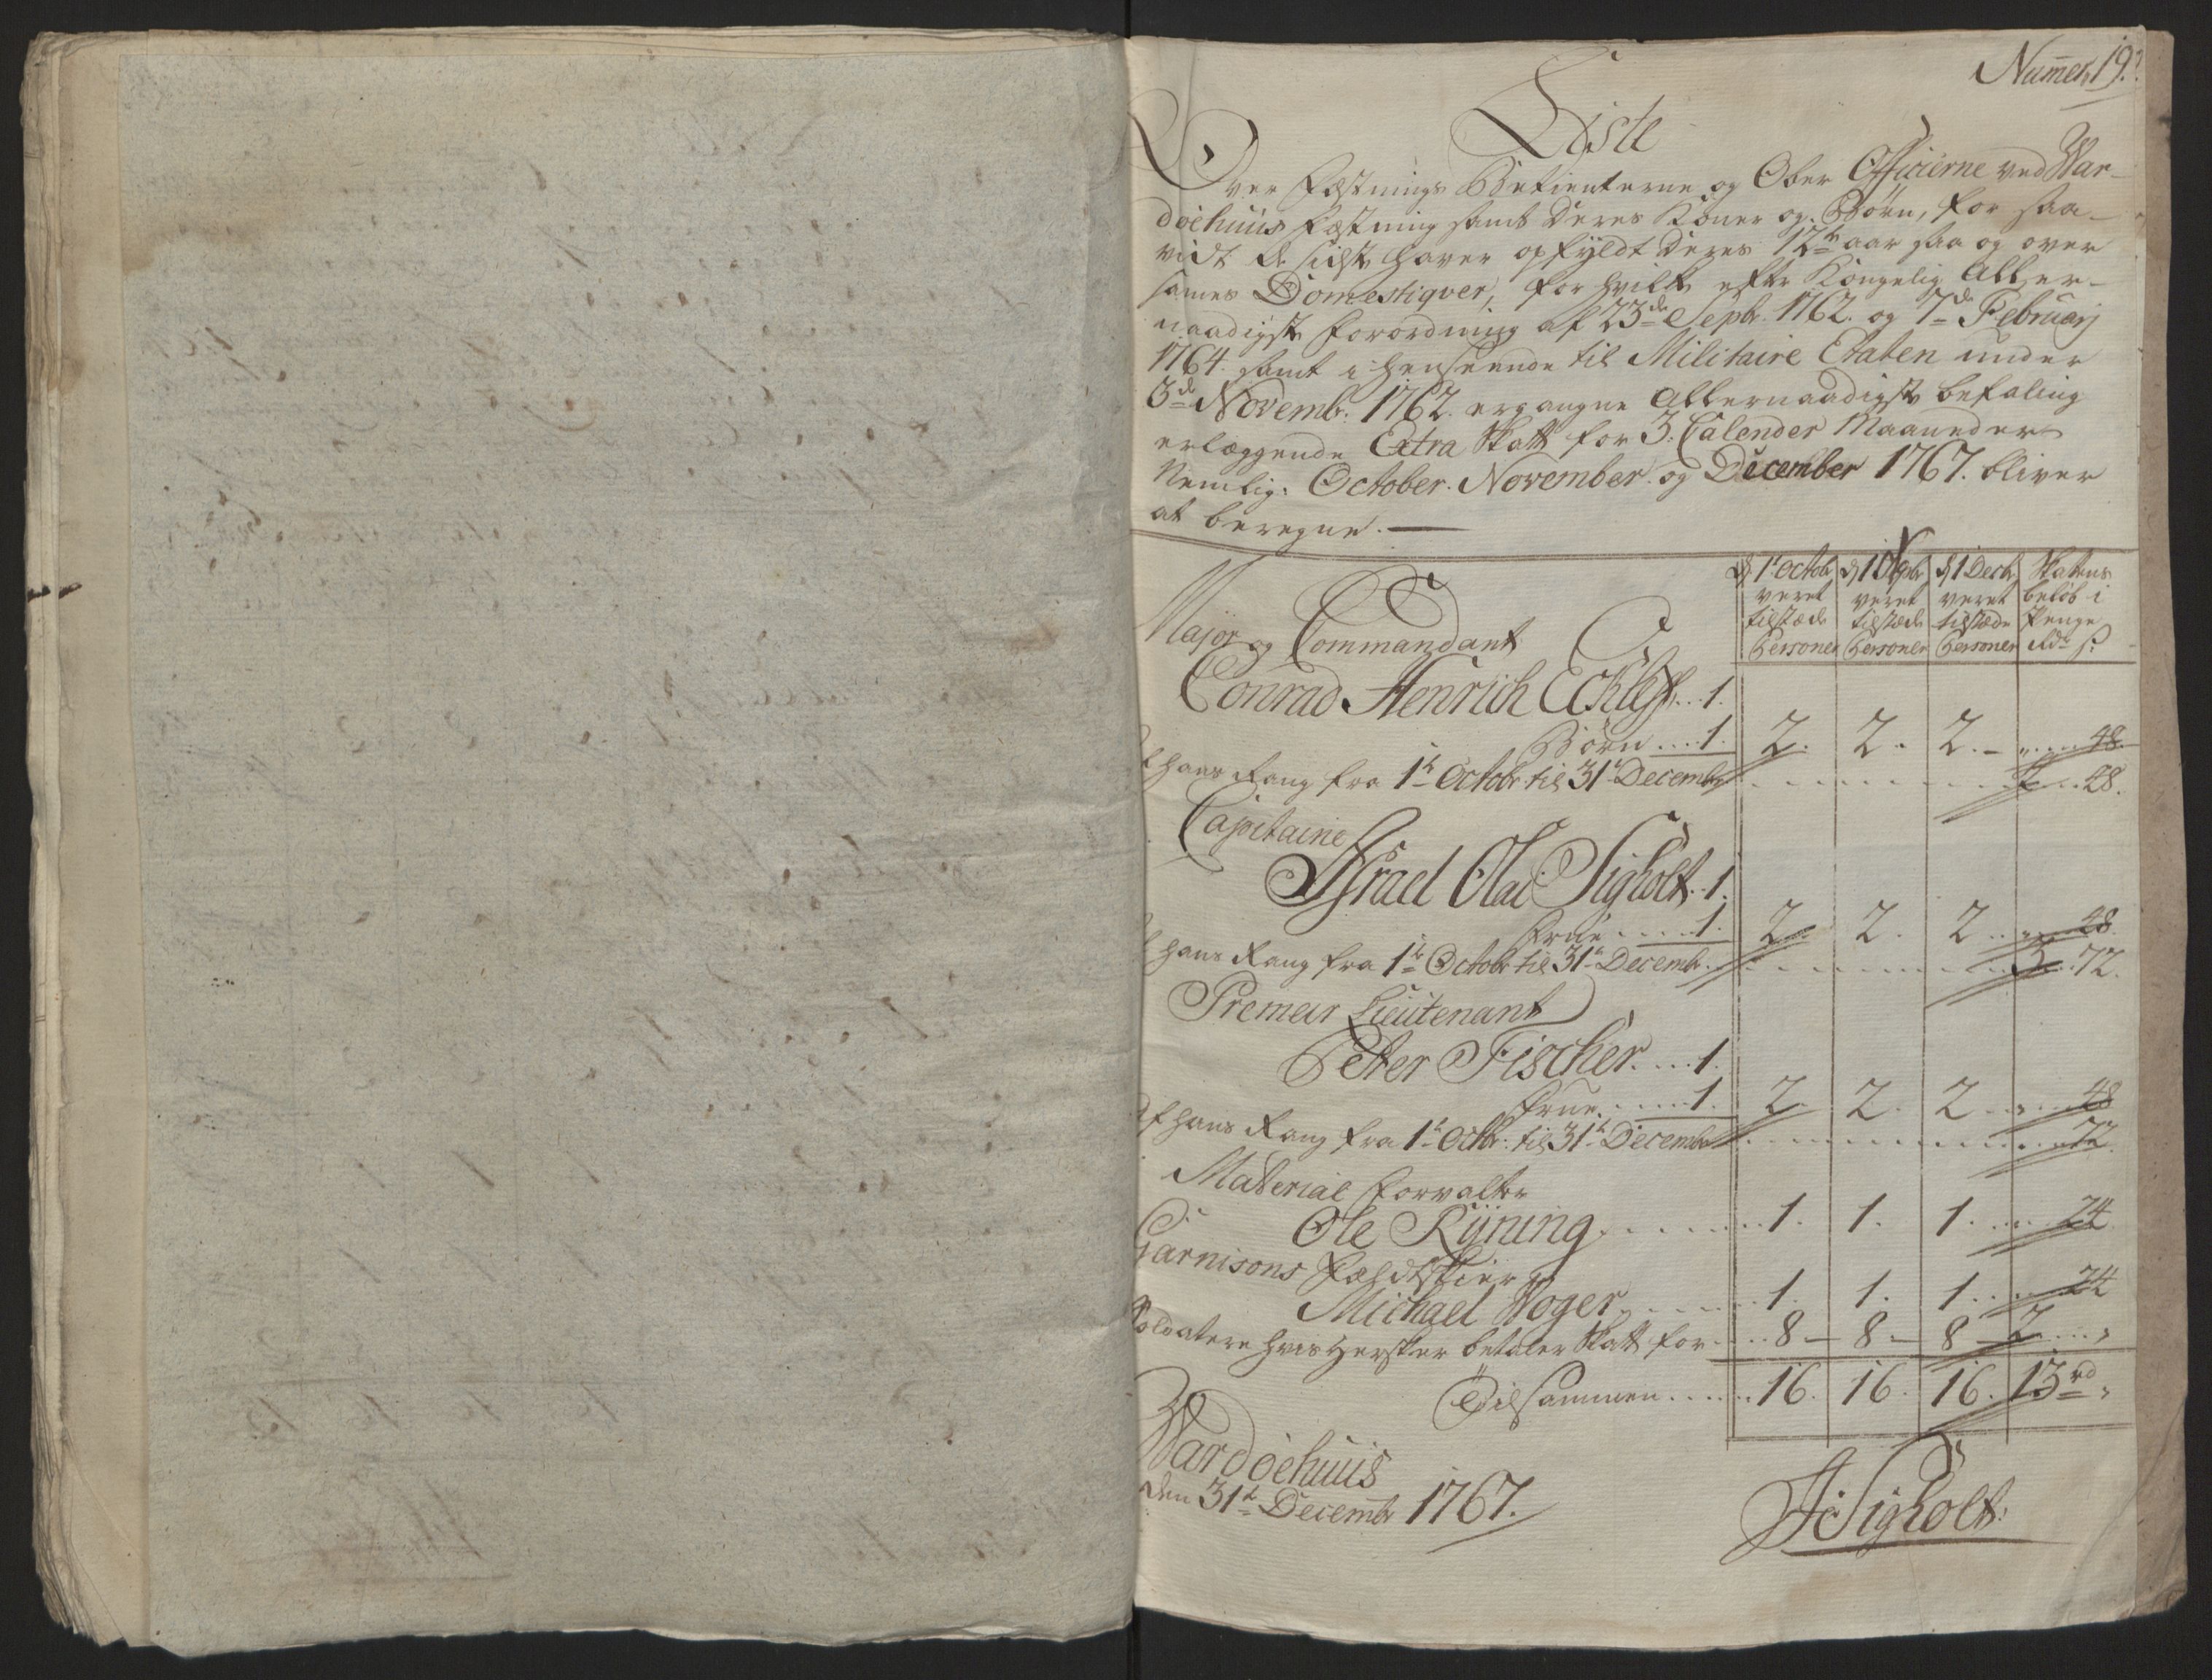 Numer 19.
Liste
Over Fæstnings Betienterne og Ober Officierne ved War-
döehuus Fæstning samt deres Koner og Börn, for saa-
vidt de sidste haver opfyldt deres 12te aar saa og over
sammes Domestiqver, for hvilke efter Kongelig Aller-
naadigste Forordning af 23de Sepbr. 1762. og 7de Februarj
1764. samt i henseende til Militaire Etaten under
3de Novemb. 1762. ergangne Allernaadigste befaling
erlæggende Extra Skatt for 3. Calender Maaneder
Nemlig: October. November. og December 1767. bliver
at beregne. —
d 1t Octobr været tilstæde Personer
d 1 været tilstæde Personer
d 1 Decbr været tilstæde Personer
Skatens beløb i Penge Rdr s:
Major og Commandant
Conrad Henrich Ecklef... 1.
Börn.... 1. 2. 2. 2. - ".... 48.
Af hans Rang fra 1te Octobr til 31te Decembr 48.
Capitaine
Israel Olai Sigholt.. 1.
Frue..... 1. 2. 2. 2... ".. 48.
Af hans Rang fra 1te Octobr til 31te Decembr... 3.. 72.
Premeir Lieutenant
Peter Fischer.... 1.
Frue...... 1. 2. 2. 2.... ".. 48
Af hans Rang fra 1te Octbr. til 31te Decembr ".. 72.
Material Forvalter
Ole Ryning....... 1. 1. 1..... 24.
Garnisons Feldtskier
Michael Woger...... 1. 1. 1..... 24
Soldatere hvis Hersker betaler Skatt for... 8 — 8 — 8 — 2.... "
Tilsammen..... 16. 16. 16. 13 rd "
Wardöehuus
den 31te Decembr 1767.
JOSigholt.